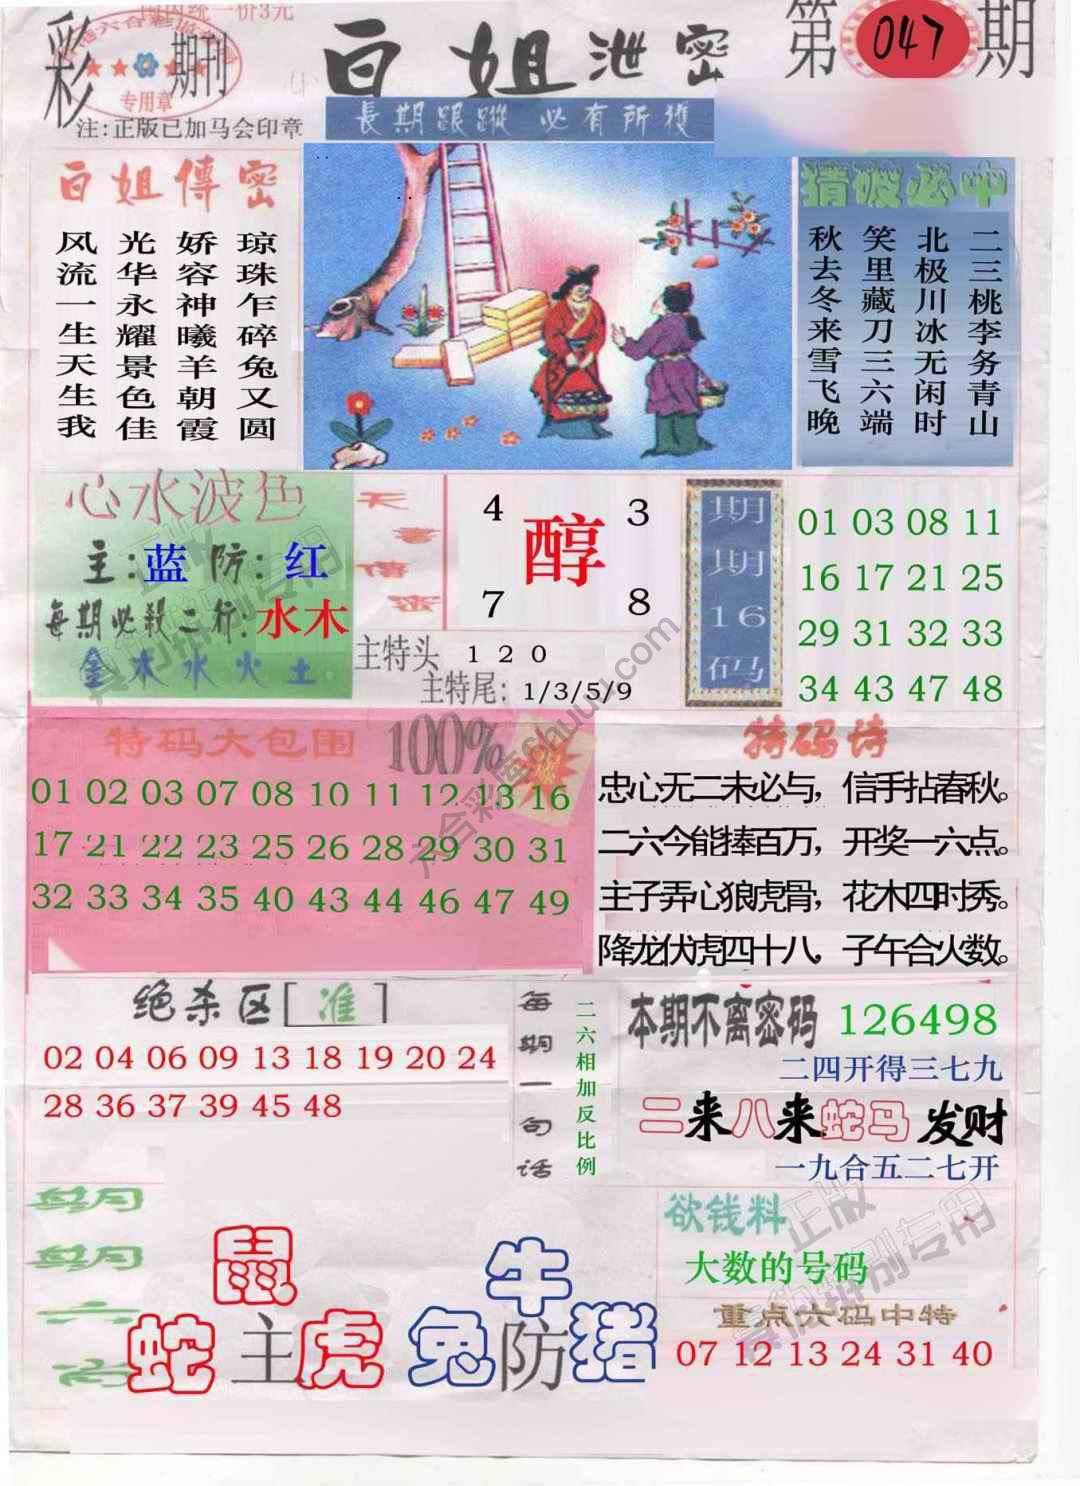 国内统一价3元
彩 期刊
专用章
注:正版已加马会印章
白姐泄密
第 047 期
長期跟蹤 必有所獲
白姐傳密
琼珠乍碎兔又圆
娇容神曦羊朝霞
光华永耀景色佳
风流一生天生我
猜破必中
二三桃李务青山
北极川冰无闲时
笑里藏刀三六端
秋去冬来雪飞晚
心水波色
主:蓝 防:红
每期必殺二行:水木
金木水火土
4 3
醇
7 8
主特头 1 2 0
主特尾:1/3/5/9
期期16码
01 03 08 11
16 17 21 25
29 31 32 33
34 43 47 48
特码大包围 100%
01 02 03 07 08 10 11 12 13 16
17 21 22 23 25 26 28 29 30 31
32 33 34 35 40 43 44 46 47 49
特码诗
忠心无二未必与，信手拈春秋。
二六今能捧百万，开奖一六点。
主子弄心狼虎骨，花木四时秀。
降龙伏虎四十八，子午合火数。
绝杀区[准]
02 04 06 09 13 18 19 20 24
28 36 37 39 45 48
每期一句话
二六相加反比例
本期不离密码 126498
二四开得三七九
二来八来蛇马发财
一九合五二七开
欲钱料
大数的号码
重点六码中特
07 12 13 24 31 40
鼠
蛇主虎
牛
兔防猪